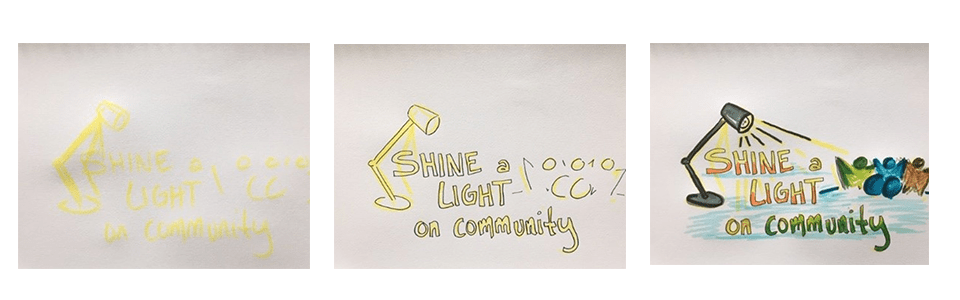 SHINE a
LIGHT
on community
SHINE a
LIGHT
on community
SHINE a
LIGHT
on community